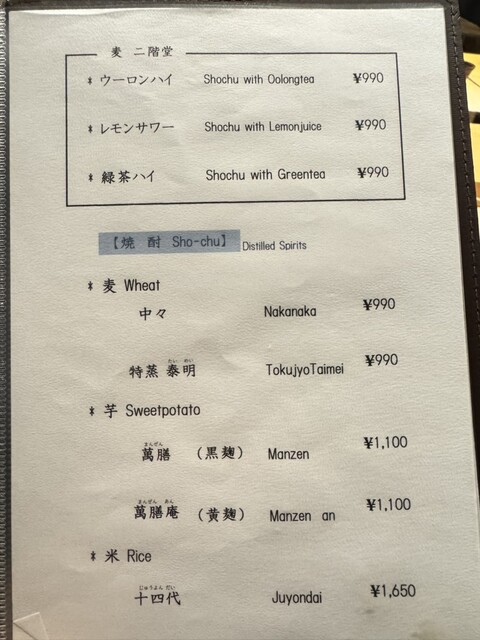 麦 二階堂
* ウーロンハイ Shochu with Oolongtea ¥990
* レモンサワー Shochu with Lemonjuice ¥990
* 緑茶ハイ Shochu with Greentea ¥990
【焼 酎 Sho-chu】 Distilled Spirits
* 麦 Wheat
中々 Nakanaka ¥990
たい めい
特蒸 泰明 TokujyoTaimei ¥990
* 芋 Sweetpotato
まんぜん
萬膳 (黒麹) Manzen ¥1,100
まんぜん あん
萬膳庵 (黄麹) Manzen an ¥1,100
* 米 Rice
じゅうよん だい
十四代 Juyondai ¥1,650